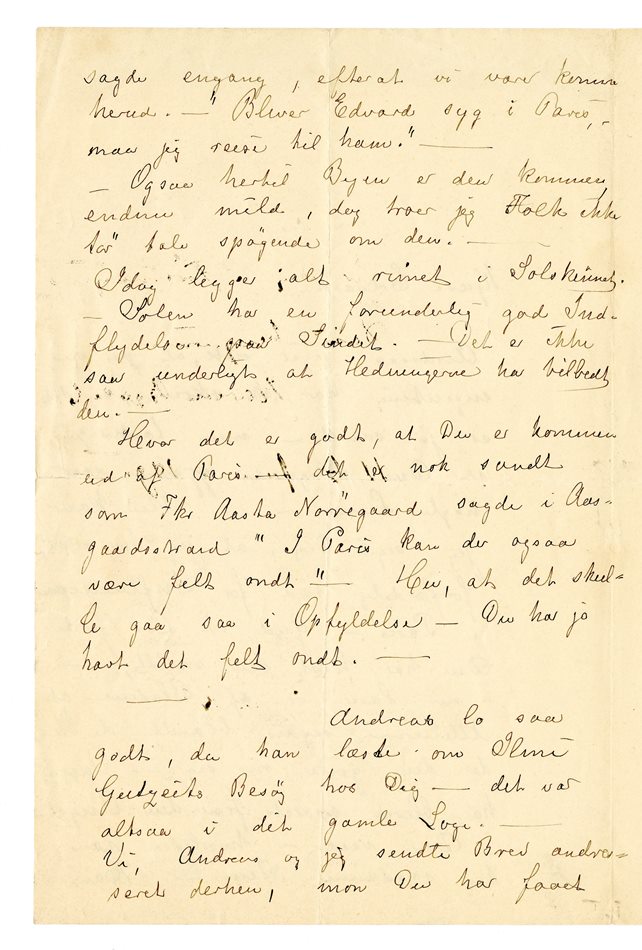 sagde engang, efterat vi vare komne
herud. — "Bliver Edvard syg i Paris, -
maa jeg reise til ham." —
— Ogsaa hertil Byen er den kommen,
endnu mild, dog troer jeg Folk ikke
tør tale spøgende om den. —
Idag ligger alt rimet i Solskinnet.
— Solen har en forunderlig god Ind-
flydelse paa Sindet. — Det er ikke
saa underligt at Hedningerne ha tilbedt
den. —
Hvor det er godt, at Du er kommen
ud af Paris — det er nok sandt
som Frk Aasta Nørregaard sagde i Aas-
gaardsstrand "I Paris kan der ogsaa
være felt ondt" — Hu, at det skul=
le gaa saa i Opfyldelse — Du har jo
havt det felt ondt. —
—
Andreas lo saa
godt, da han læste om
Gutzeits Besøg hos Dig — det var
altsaa i dit gamle Logi. —
Vi, Andreas og jeg sendte Brev andres-
seret derhen, mon Du har faaet